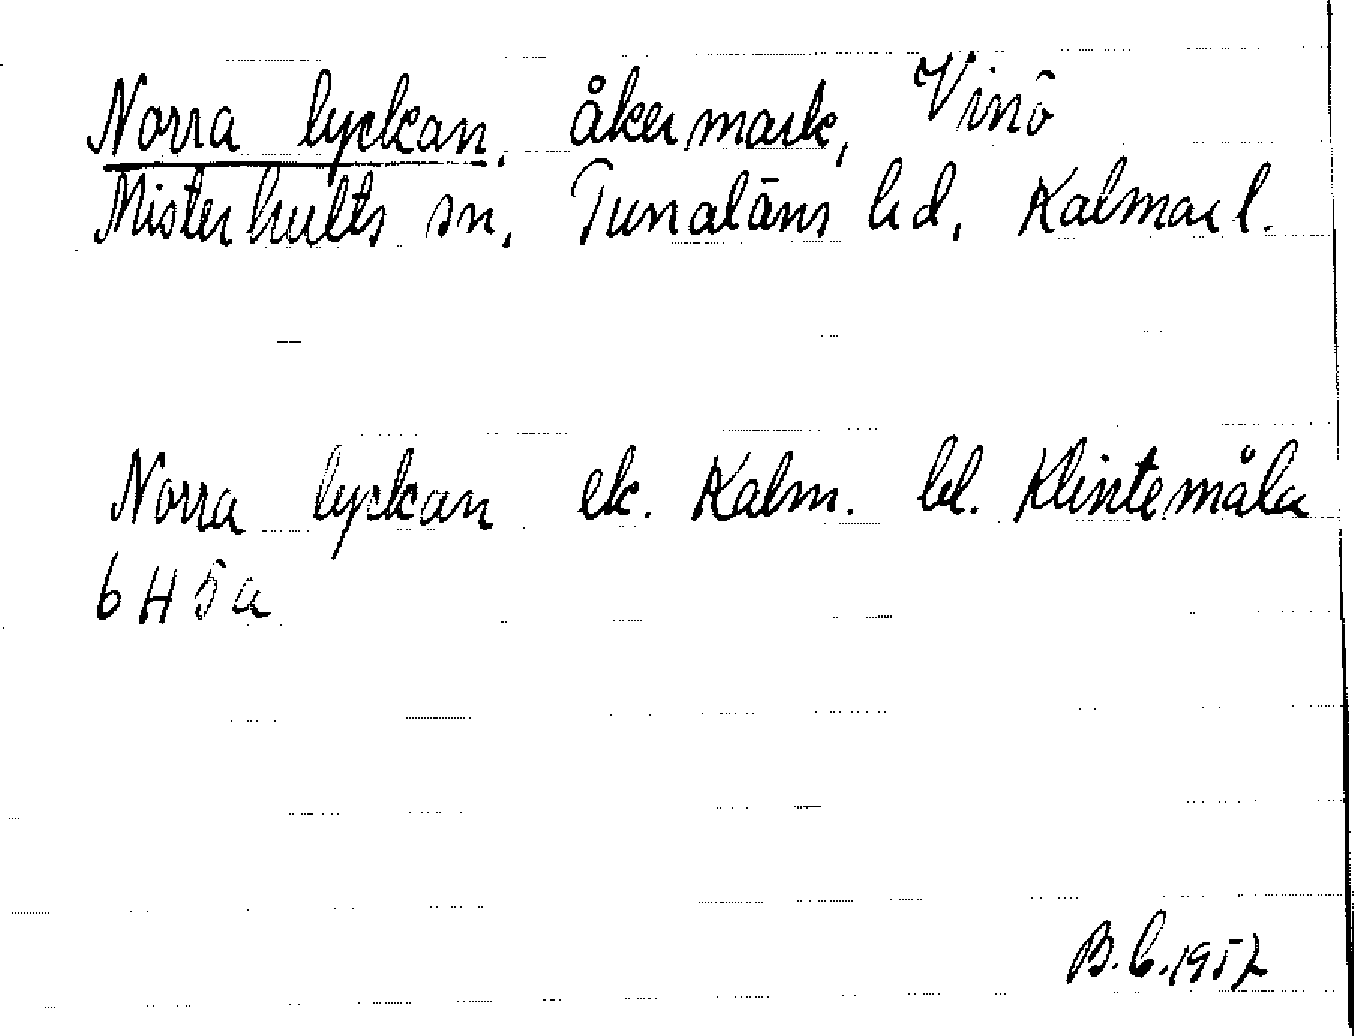 Norra lyckan, åkermark, Vinö
Misterhults sn, Tunaläns hd, Kalmar l.
Norra lyckan ek. Kalm. bl. Klintemåla
6 H 5 a
B.C. 1952